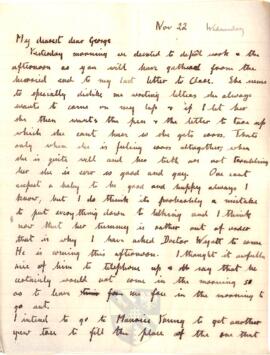 Nov 22 Wednesday
My dearest dear George
Yesterday morning we devoted to work & the
afternoon as you will have gathered from the
and to my last letter to Clare. She seems
to specially dislike me writing letters she always
wants to come on my lap & if I let her
she then wants the pen & the letter to take up
which she can't have so she gets cross. That's
only when she is feeling cross altogether, when
she is quite well and her teeth are not troubling
her she is ever so good and gay. One can't
expect a baby to be good and happy always I
know, but I do think it's probably a mistake
to put everything down to teething and I think
now that her tummy is rather out of order
that is why I have asked Doctor Wyatt to come
He is coming this afternoon. I thought it awfully
nice of him to telephone up & say that he
certainly would not come in the morning so
as to leave me free in the morning to
go out.
I intend to go to Maurice Young to get another
yew tree to fill the place of the one that